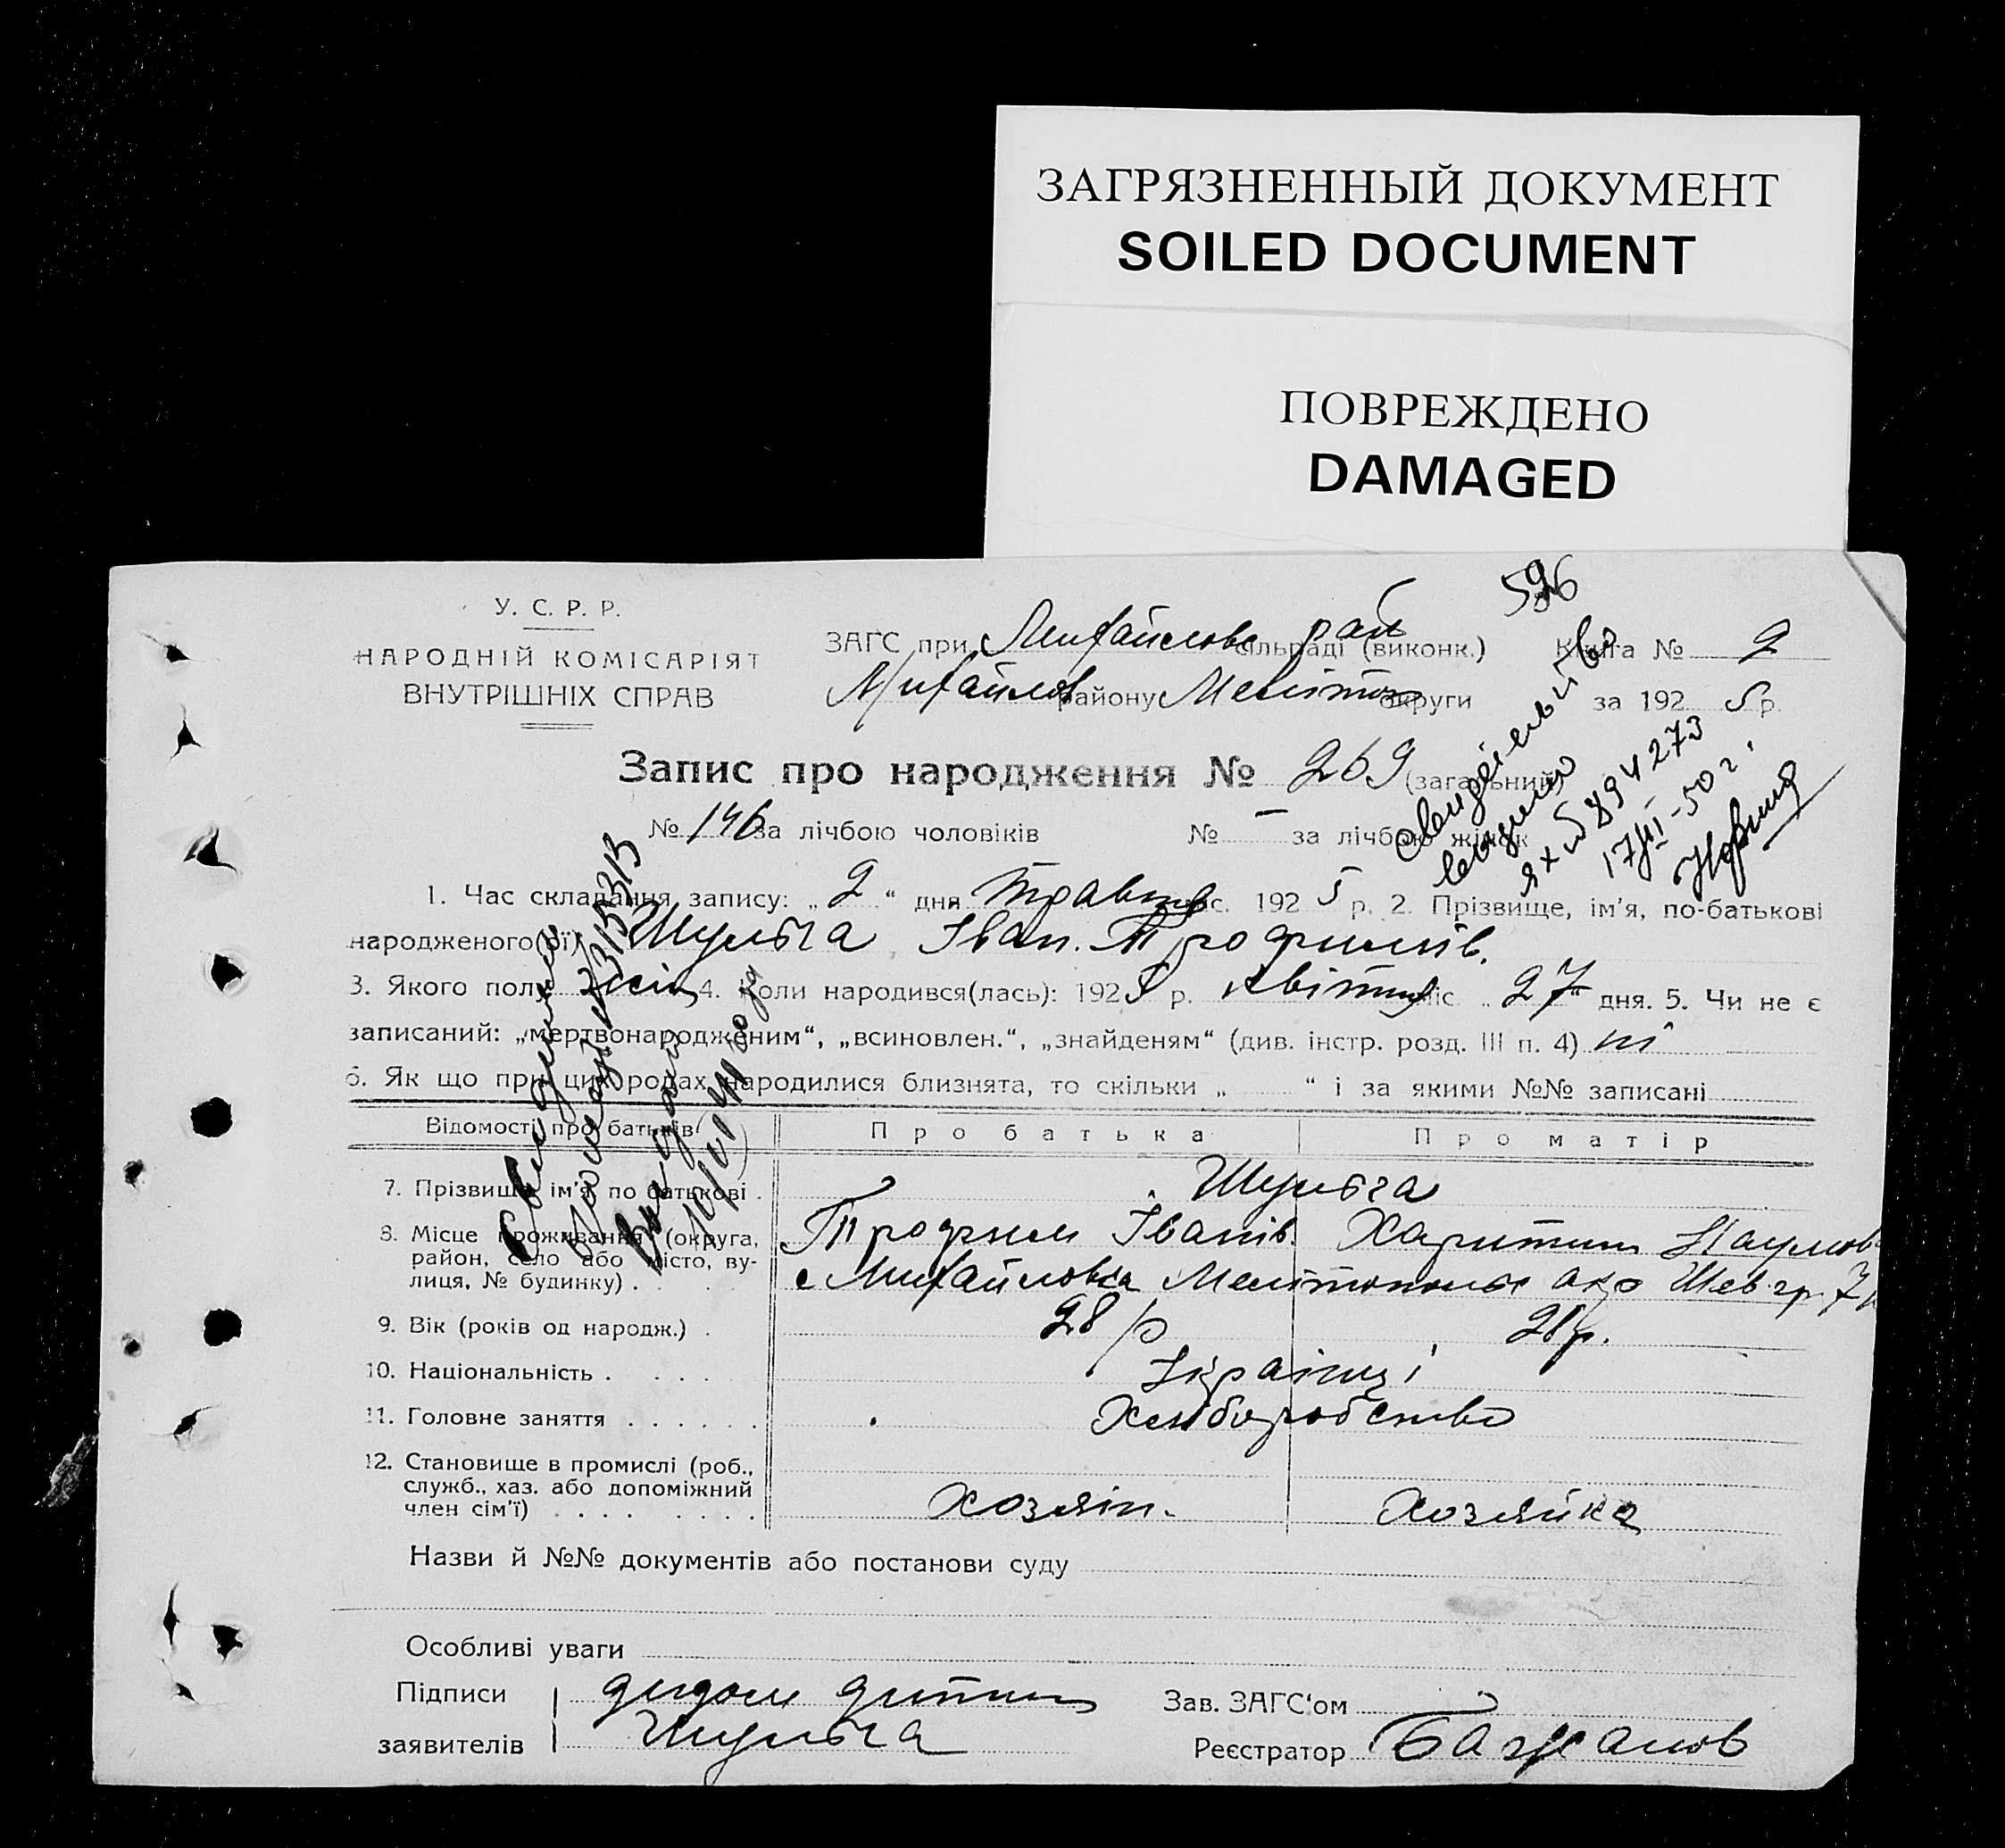 ЗАГРЯЗНЕННЫЙ ДОКУМЕНТ
SOILED DOCUMENT
ПОВРЕЖДЕНО
DAMAGED
У. С. Р. Р.
НАРОДНІЙ КОМІСАРІЯТ
ВНУТРІШНІХ СПРАВ
596
ЗАГС при Михайловс рай сільраді (виконк.) Книга № 2
Михайлов району Мелітоп округи за 1925 р.
Запис про народження № 269 (загальний)
№ 146 за лічбою чоловіків № — за лічбою жінок
1. Час складання запису: „2“ дня травня міс. 1925 р. 2. Прізвище, ім'я, по-батькові
народженого(ої) Шульга Іван Трофимів.
3. Якого полу чол 4. Коли народився(лась): 1925 р. квітня міс. „27“ дня. 5. Чи не є
записаний: „мертвонародженим“, „всиновлен.“, „знайденям“ (див. інстр. розд. III п. 4) ні
6. Як що при цих родах народилися близнята, то скільки „ “ і за якими №№ записані
Свидетельство
выдано
894273
17/III-50 г.
Відомості про батьків Про батька Про матір
7. Прізвище, ім'я, по батькові . Шульга
Трофим Іванів. Харитина Наумов
8. Місце проживання (округа,
район, село або місто, ву-
лиця, № будинку) . с Михайловка Мелітопольс окр Шев. гр. 7
9. Вік (років од народж.) . 28 р 28 р.
10. Національність . Українці
11. Головне заняття . . . . . . Хліборобство
12. Становище в промислі (роб.,
служб., хаз. або допоміжний
член сім'ї) . . . . Хозяін. Хозяйка
Назви й №№ документів або постанови суду
Особливі уваги
Підписи дидом дитини Зав. ЗАГС'ом
заявителів Шульга Реєстратор Бажанов